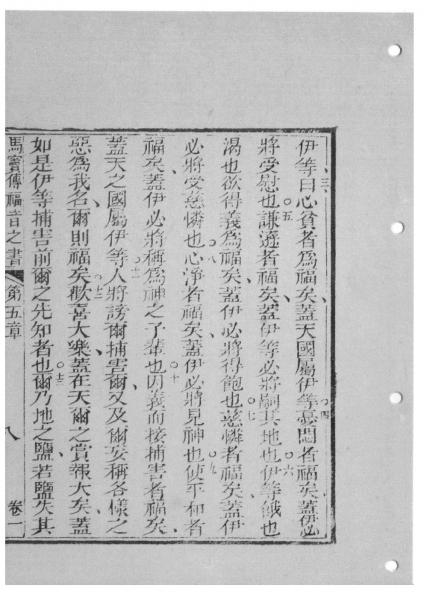 伊等曰心貧者爲福矣蓋天國屬伊等憂悶者福矣蓋伊必
將受慰也謙遜者福矣蓋伊等必將嗣其地也伊等餓也
渴也欲得義爲福矣蓋伊必將得飽也慈憐者福矣蓋伊
必將受慈憐也心淨者福矣蓋伊必將見神也使平和者
福矣蓋伊必將稱爲神之子輩也因義而接捕害者福矣
蓋天之國屬伊等人將謗爾捕害爾又及爾妄稱各樣之
惡爲我名爾則福矣歡喜大樂蓋在天爾之賞報大矣蓋
如是伊等捕害前爾之先知者也爾乃地之鹽若鹽失其
馬竇傳福音之書 第五章 八 卷一
三
四
五
六
七
八
九
十
十一
十二
十三